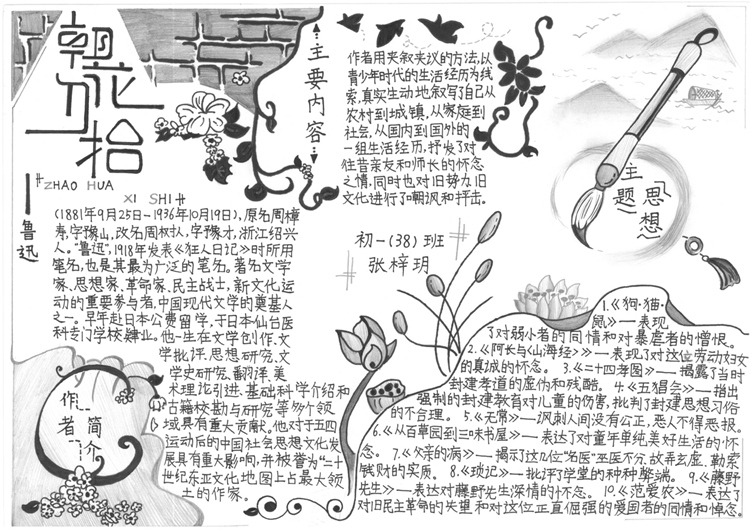 朝花夕拾
ZHAO HUA
XI SHI
鲁迅
(1881年9月25日-1936年10月19日),原名周樟
寿,字豫山,改名周树人,字豫才,浙江绍兴
人。"鲁迅",1918年发表《狂人日记》时所用
笔名,也是其最为广泛的笔名。著名文学
家、思想家、革命家、民主战士,新文化运
动的重要参与者,中国现代文学的奠基人
之一。早年赴日本公费留学,于日本仙台医
科专门学校肄业。他一生在文学创作、文
学批评、思想研究、文
学史研究、翻译、美
术理论引进、基础科学介绍和
古籍校勘与研究等多个领
域具有重大贡献。他对于五四
运动后的中国社会思想文化发
展具有重大影响,并被誉为"二十
世纪东亚文化地图上占最大领
土的作家。
作者简介
主要内容
作者用夹叙夹议的方法,以
青少年时代的生活经历为线
索,真实生动地叙写了自己从
农村到城镇,从家庭到
社会,从国内到国外的
一组生活经历,抒发了对
往昔亲友和师长的怀念
之情,同时也对旧势力、旧
文化进行了嘲讽和抨击。
初一(38)班
张梓玥
主题思想
1.《狗·猫·
鼠》—表现
了对弱小者的同情和对暴虐者的憎恨。
2.《阿长与〈山海经〉》—表现了对这位劳动妇女
的真诚的怀念。 3.《二十四孝图》—揭露了当时
封建孝道的虚伪和残酷。 4.《五猖会》—指出
强制的封建教育对儿童的伤害,批判了封建思想习俗
的不合理。 5.《无常》—讽刺人间没有公正,恶人不得恶报。
6.《从百草园到三味书屋》—表达了对童年单纯美好生活的怀
念。 7.《父亲的病》—揭示了这几位"名医"巫医不分、故弄玄虚、勒索
钱财的实质。 8.《琐记》—批评了学堂的种种弊端。 9.《藤野
先生》—表达对藤野先生深情的怀念。 10.《范爱农》—表达了
对旧民主革命的失望和对这位正直倔强的爱国者的同情和悼念。